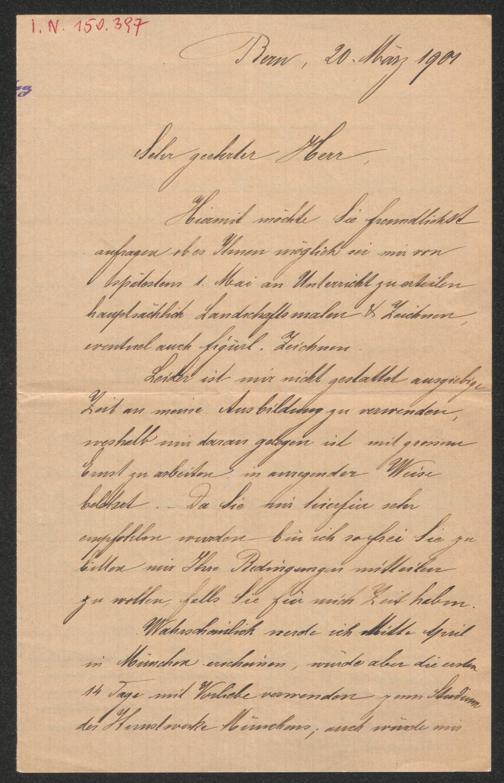 I. N. 150.397
Bern, 20. März 1901
Sehr geehrter Herr,
Hiermit möchte Sie freundlichst
anfragen ob es Ihnen möglich sei mir von
spätestens 1. Mai an Unterricht zu erteilen
hauptsächlich Landschaftsmalen & Zeichnen,
eventuel auch figürl. Zeichnen.
Leider ist mir nicht gestattet ausgiebige
Zeit an meine Ausbildung zu verwenden,
weshalb mir daran gelegen ist mit grossem
Ernst zu arbeiten in anregender Weise
. – Da Sie mir hierfür sehr
empfohlen wurden bin ich so frei Sie zu
bitten mir Ihre Bedingungen mitteilen
zu wollen, falls Sie für mich Zeit haben.
Wahrscheinlich werde ich Mitte April
in München erscheinen, würde aber die ersten
14 Tage mit Vorliebe verwenden zum Studium
der Kunstwerke Münchens, auch würde mir